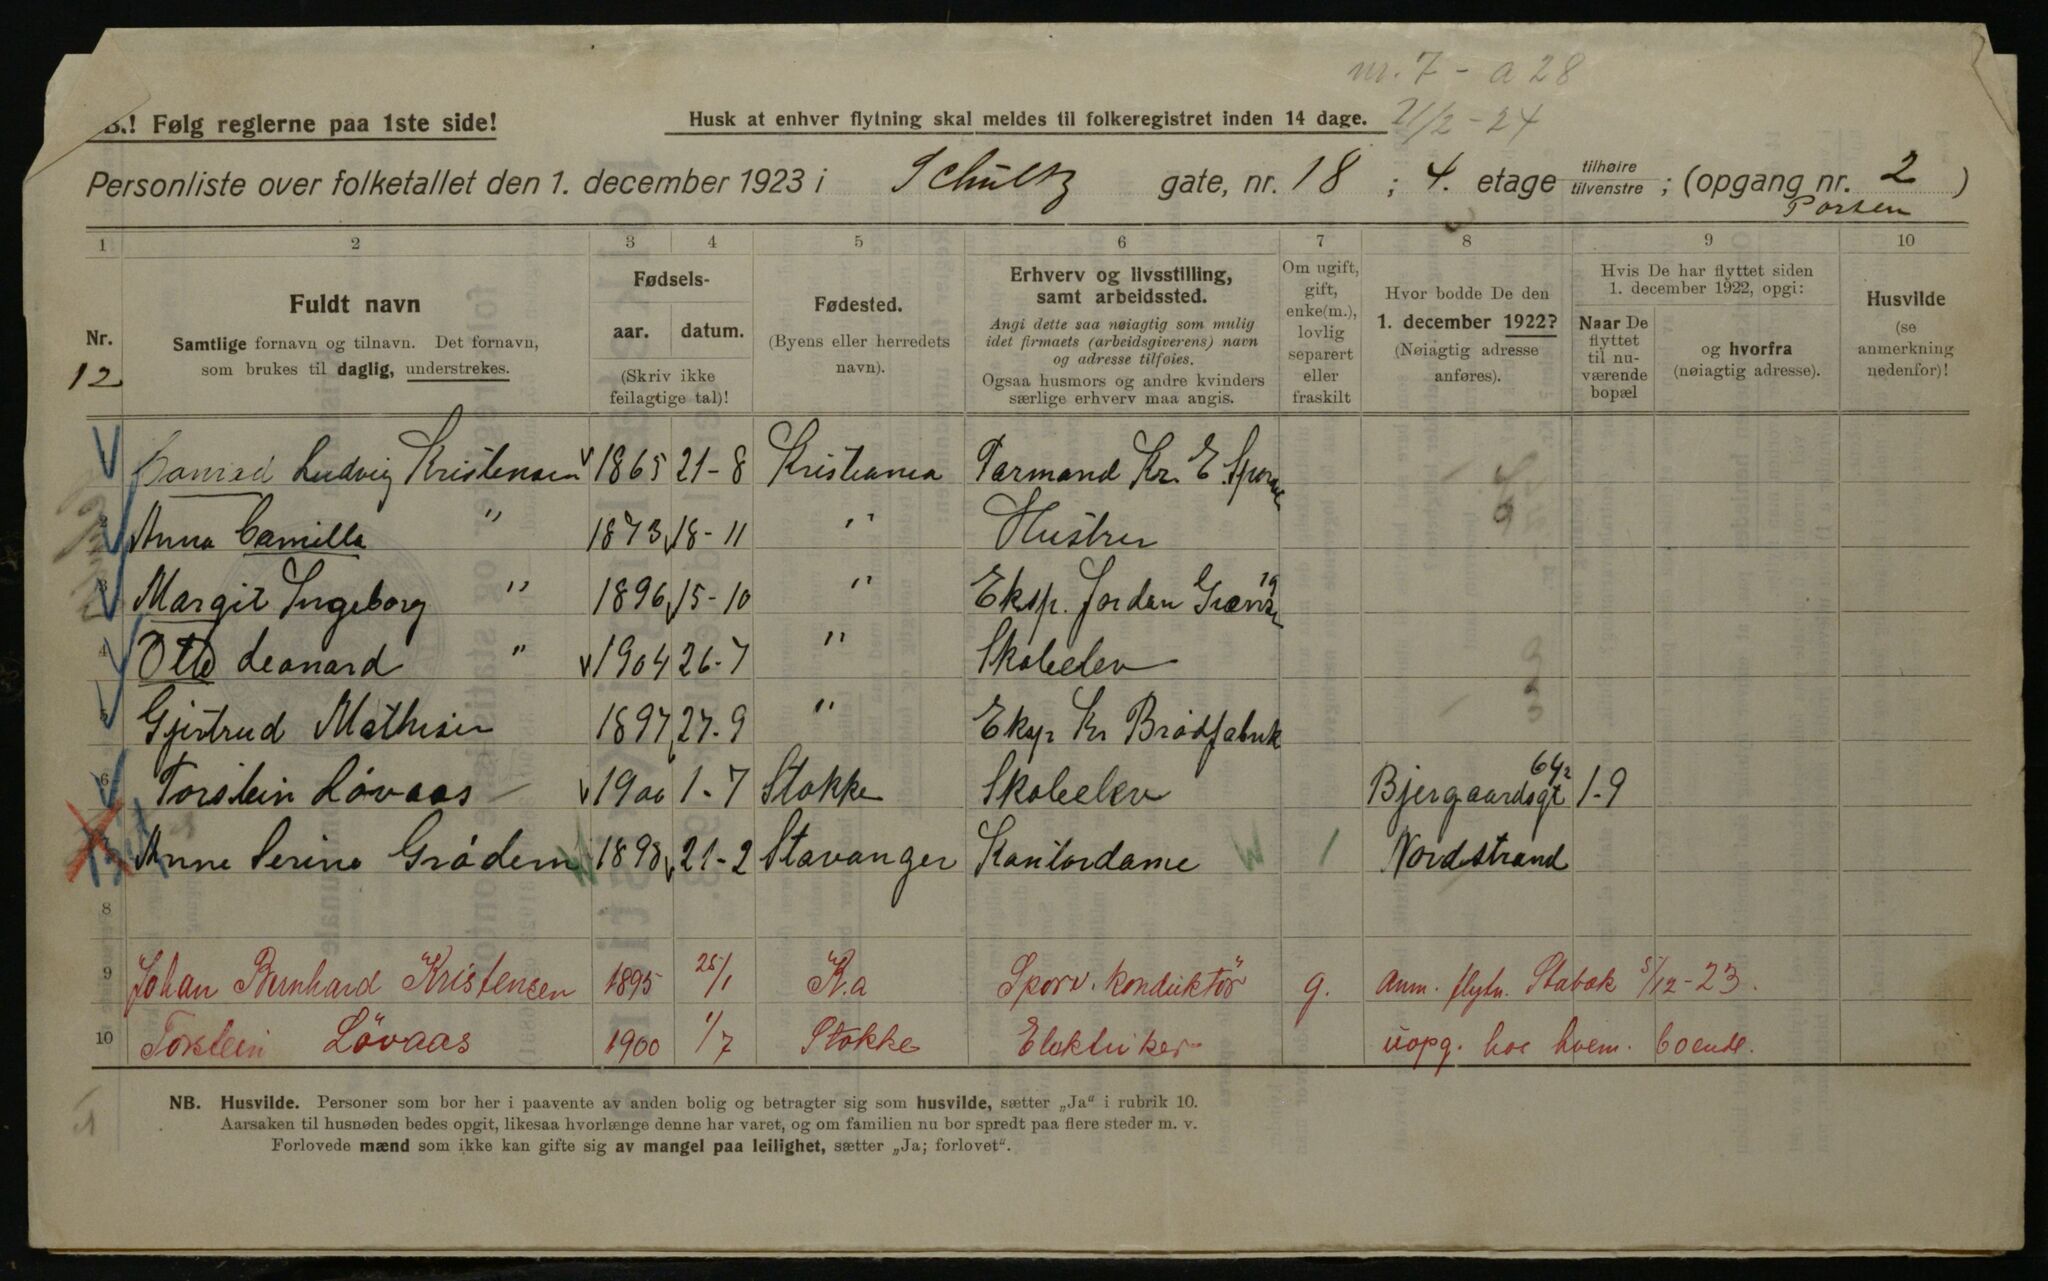 nr. 7 - a 28
B.! Følg reglerne paa 1ste side!
Husk at enhver flytning skal meldes til folkeregistret inden 14 dage. 21/2-24
Personliste over folketallet den 1. december 1923 i Schultz gate, nr. 18; 4. etage tilhøire tilvenstre; (opgang nr. 2)
1 2 3 4 5 6 7 8 9 10
Nr.
12
Fuldt navn
Samtlige fornavn og tilnavn. Det fornavn,
som brukes til daglig, understrekes.
Fødsels-
aar. datum.
(Skriv ikke
feilagtige tal)!
Fødested.
(Byens eller herredets
navn).
Erhverv og livsstilling,
samt arbeidssted.
Angi dette saa nøiagtig som mulig
idet firmaets (arbeidsgiverens) navn
og adresse tilføies.
Ogsaa husmors og andre kvinders
særlige erhverv maa angis.
Om ugift,
gift,
enke(m.),
lovlig
separert
eller
fraskilt
Hvor bodde De den
1. december 1922?
(Nøiagtig adresse
anføres).
Hvis De har flyttet siden
1. december 1922, opgi:
Naar De
flyttet
til nu-
værende
bopæl
og hvorfra
(nøiagtig adresse).
Husvilde
(se
anmerkning
nedenfor)!
Conrad Ludvig Kristensen 1865 21-8 Kristiania Formand Kr. E. Sporv
2 Anna Camilla " 1873 18-11 " Hustru
3 Margit Ingeborg " 1896 15-10 " Eksp. Jordan Græns 19
4 Otto Leonard " 1904 26-7 " Skoleelev
5 Gjertrud Mathisen 1897 27-9 " Eksp Kr Brødfabrik
6 Torstein Løvaas 1900 1-7 Stokke Skoleelev Bjergaardsgt 64 1-9
Anne Serine Grødem 1898 21-2 Stavanger Kontordame Nordstrand
8
9 Johan Bernhard Kristensen 1895 25/1 K.a Sporv. konduktör g. anm. flytn. Stabæk 5/12-23.
10 Torstein Lövaas 1900 1/7 Stokke Elektriker uopg. hos hvem. boende.
NB. Husvilde. Personer som bor her i paavente av anden bolig og betragter sig som husvilde, sætter „Ja“ i rubrik 10.
Aarsaken til husnøden bedes opgit, likesaa hvorlænge denne har varet, og om familien nu bor spredt paa flere steder m. v.
Forlovede mænd som ikke kan gifte sig av mangel paa leilighet, sætter „Ja; forlovet“.